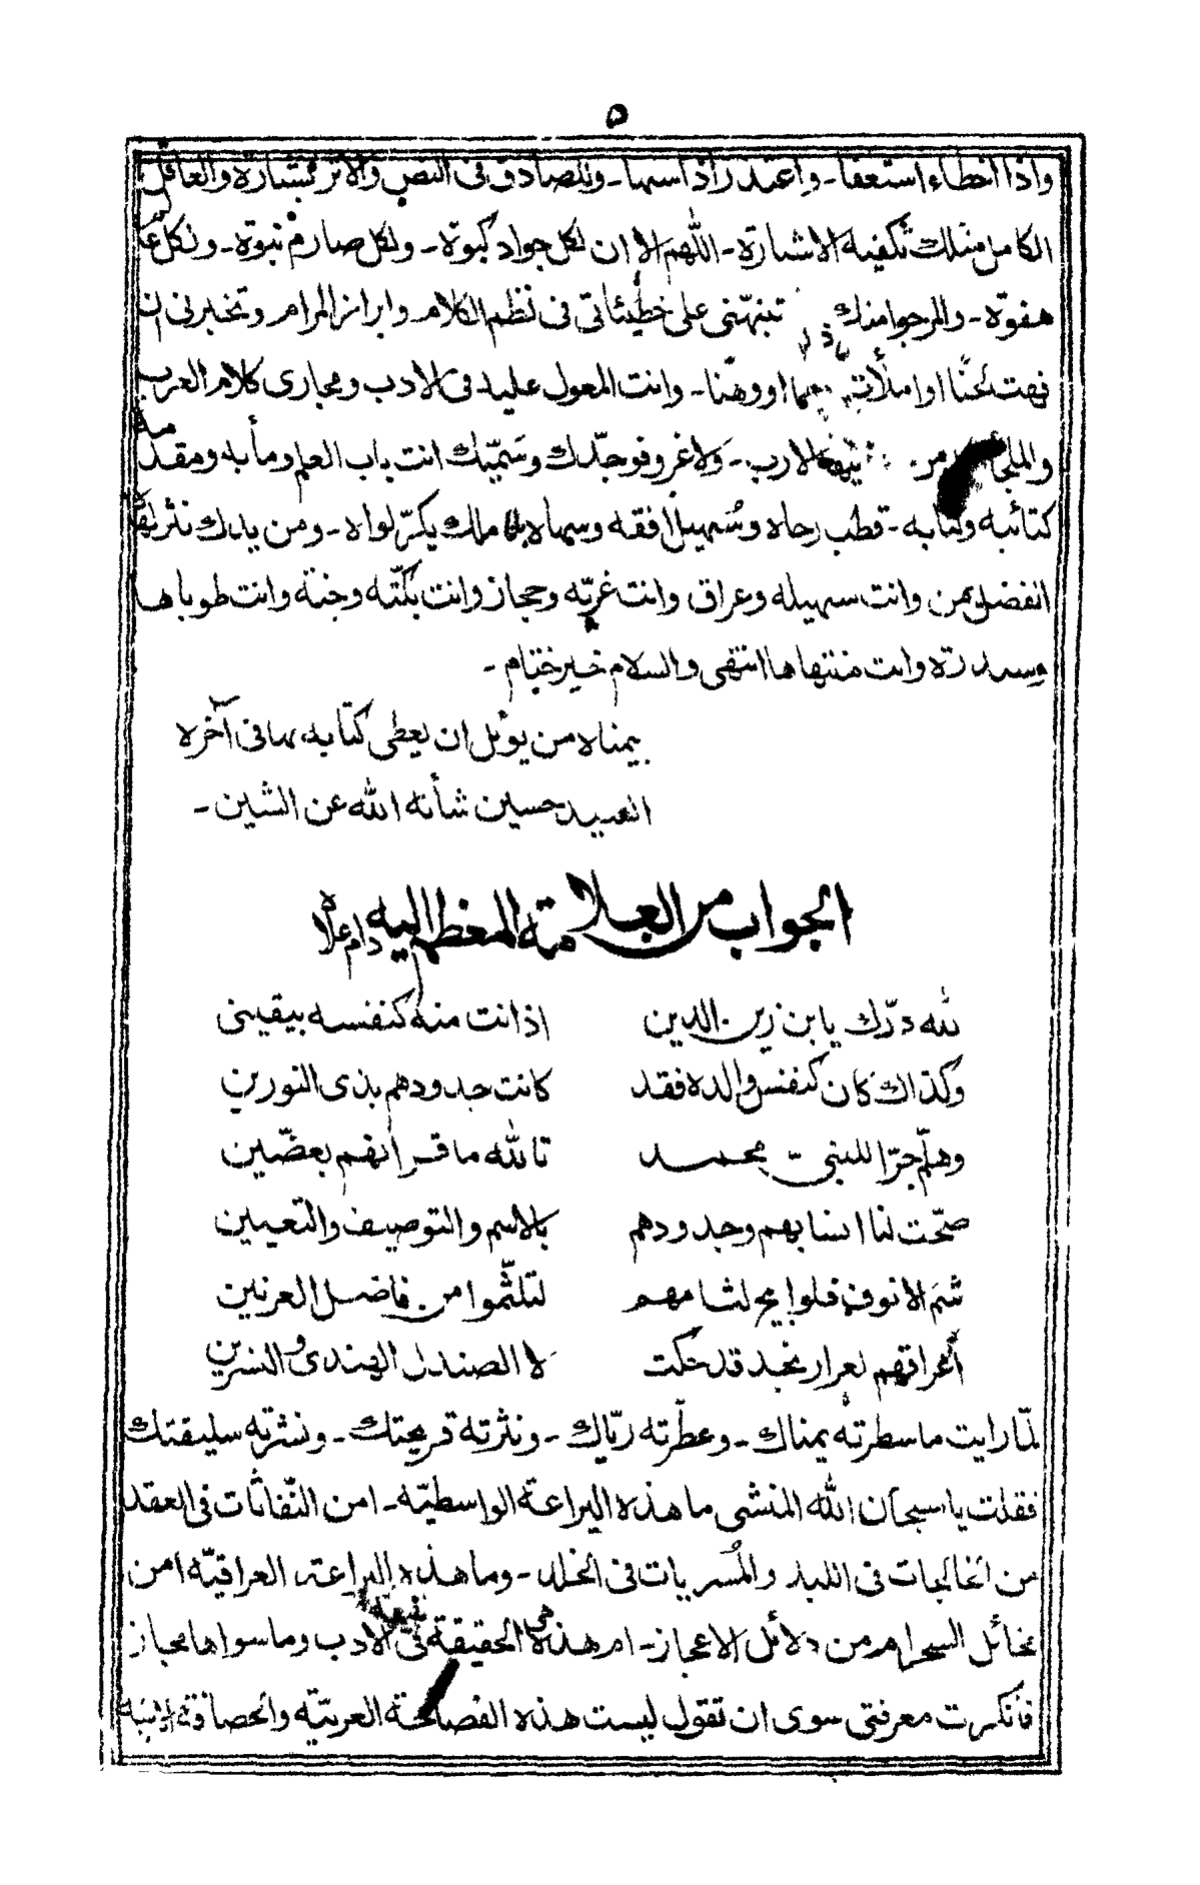 ٥
واذا اخطاء استعفا - واعتذر اذا سها - وللصادق فى النص والاثر بشارة والعاقل
الكامل مثلك تكفيه الاشارة - اللهم الا ان لكل جواد كبوة - ولكل صارم نبوة - ولكل
هفوة - والمرجو منك تنبهنى على خطيئاتى فى نظم الكلام وابراز المرام وتخبرنى ان
فهت لحنًا او وهنا - وانت المعول عليه فى الادب ومجارى كلام العرب
الارب - ولا غرو فوجدّك وسَمِيّك انت باب العلم ومأبه ومقدمة
كتائبه وكتابه - قطب رحاه وسُهيل أفقه وسماه ملك يكرّ لواه - ومن يدك نثر
انفضل يمن وانت سهيله وعراق وانت غريّه وحجاز وانت بكّته وجنة وانت طوباها
وسدرته وانت منتهاها انتهى والسلام خير ختام -
بيمناه من يؤمل ان يعطى كتابه بها فى آخره
العبيد حسين شأنه الله عن الشين -
الجواب من العلامة المعظم اليه دام علاه
لله درّك يا بن زين الدين اذ انت منه كنفسه بيقينى
وكذاك كان كنفس والده فقد كانت جدودهم بذى النورين
وهلّم جرّا للنبىّ محمد تالله ما قرأنهم بعضّين
صحّت لنا انسابهم وجدودهم بالاسم والتوصيف والتعيين
شم الانوف فلوا يح لشامهم لتلثّموا من فاضل العرنين
أعراقهم لعرار نجد قد حكت لا الصندل الهندى والنسرين
لمّا رايت ما سطرته يمناك - وعطّرته ريّاك - ونثرته قريحتك - ونشرته سليقتك
فقلت يا سبحان الله المنشى ما هذه اليراعة الواسطيّه - امن النّفاثات فى العقد
من الخالجات فى اللبد والمُسريات فى الخلد - وما هذه البراعة العراقيّة امن
مخائل السحر ام من دلائل الاعجاز - ام هذه هى الحقيقة فى الادب وما سواها مجاز
فأنكرت معرفتى سوى ان تقول ليست هذه الفصاحة العربيّه والحصافة